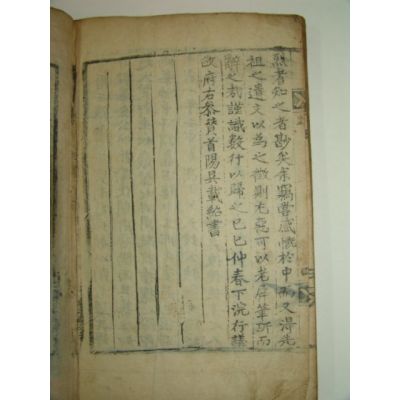 熟者知之者尠矣余竊嘗感慨於中而又得先
祖之遺文以爲之徵則尤惡可以老屛筆硏而
辭之哉謹識數行以歸之己巳仲春下浣行議
政府右參贊首陽吳載紹書